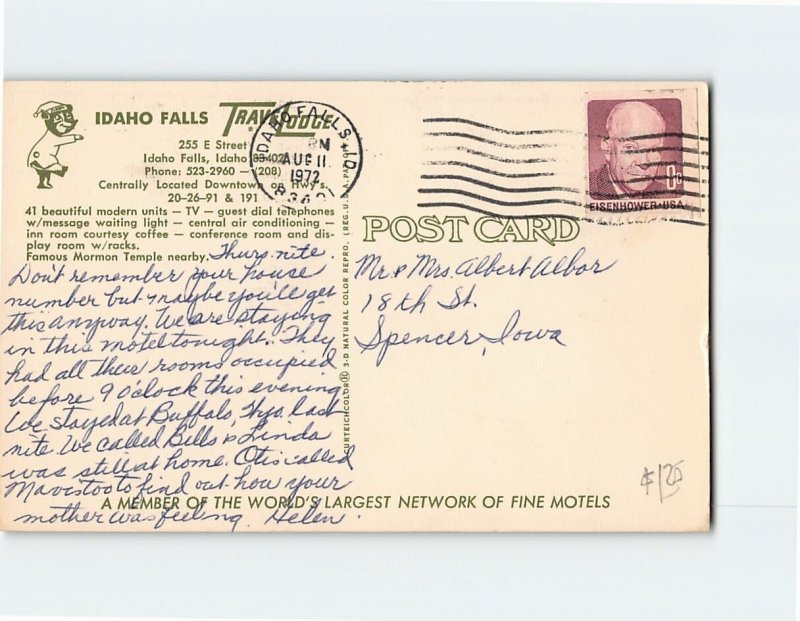 IDAHO FALLS TRAVELODGE
255 E Street
Idaho Falls, Idaho 83402
Phone: 523-2960 — (208)
Centrally Located Downtown on Hwy's.
20-26-91 & 191
41 beautiful modern units — TV — guest dial telephones
w/message waiting light — central air conditioning —
inn room courtesy coffee — conference room and dis-
play room w/racks.
Famous Mormon Temple nearby.
IDAHO FALLS, ID.
PM
AUG 11
1972
EISENHOWER·USA
POST CARD
CURTEICHCOLOR® 3-D NATURAL COLOR REPRO. (REG. U.S.A. PAT. OFF.)
Thurs. nite.
Don't remember your house
number but maybe you'll get
this anyway. We are staying
in this motel tonight. They
had all their rooms occupied
before 9 o'clock this evening
We stayed at Buffalo, Wyo. last
nite. We called Bills & Linda
was still at home. Otis called
Mavis too to find out how your
mother was feeling. Helen.
Mr. & Mrs. Albert Albor
18th St.
Spencer, Iowa
A MEMBER OF THE WORLD'S LARGEST NETWORK OF FINE MOTELS